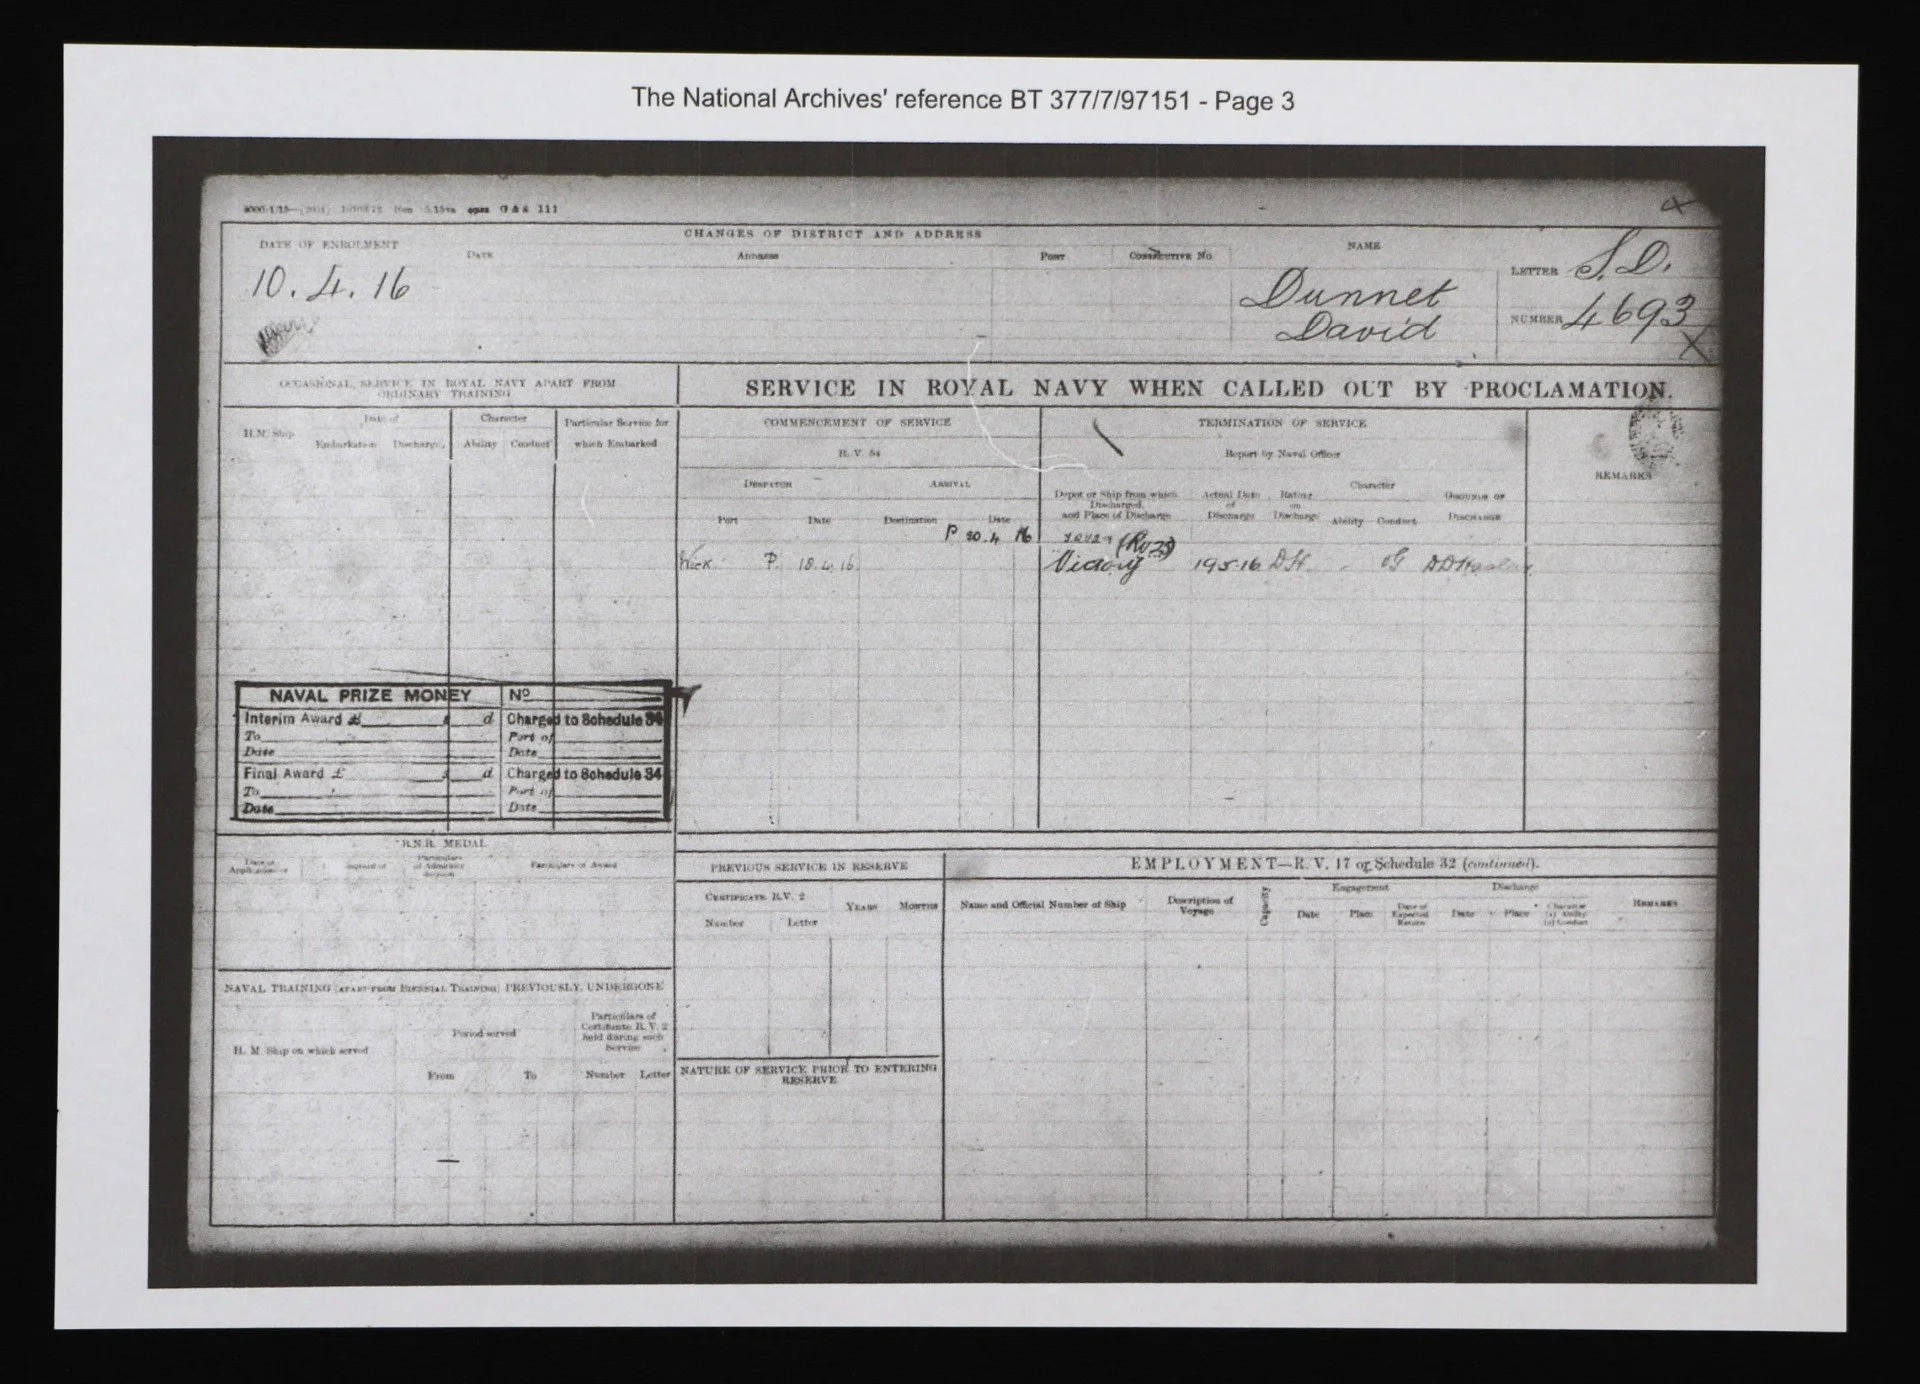 The National Archives' reference BT 377/7/97151 - Page 3
G & S 111
CHANGES OF DISTRICT AND ADDRESS
DATE OF ENROLMENT
DATE
ADDRESS
PORT
CONSECUTIVE No.
NAME
LETTER S.D.
10.4.16
Dunnet
David
NUMBER 4693
OCCASIONAL SERVICE IN ROYAL NAVY APART FROM
ORDINARY TRAINING
SERVICE IN ROYAL NAVY WHEN CALLED OUT BY PROCLAMATION.
H.M. Ship
Date of
Embarkation
Discharge
Character
Ability
Conduct
Particular Service for
which Embarked
COMMENCEMENT OF SERVICE
R. V. 54
DESPATCH
ARRIVAL
Port
Date
Destination
Date
TERMINATION OF SERVICE
Report by Naval Officer
Depot or Ship from which
Discharged,
and Place of Discharge
Actual Date
of
Discharge
Rating
on
Discharge
Character
Ability
Conduct
GROUNDS OF
DISCHARGE
REMARKS
P 20.4 16
Wick P. 18.4.16
Victory 19.5.16 DH. - VG DD Haslar
NAVAL PRIZE MONEY No
Interim Award £ s d Charged to Schedule 34
To Port of
Date Date
Final Award £ s d Charged to Schedule 34
To Port of
Date Date
R.N.R. MEDAL
Date of
Application
Particulars
of Admiralty
decision
Particulars of Award
PREVIOUS SERVICE IN RESERVE
CERTIFICATE R.V. 2
Number
Letter
YEARS
MONTHS
EMPLOYMENT—R. V. 17 or Schedule 32 (continued).
Name and Official Number of Ship
Description of
Voyage
Capacity
Engagement
Date
Place
Date of
Expected
Return
Discharge
Date
Place
Character
(a) Ability
(b) Conduct
REMARKS
NAVAL TRAINING (APART FROM BIENNIAL TRAINING) PREVIOUSLY UNDERGONE
H. M. Ship on which served
Period served
From
To
Particulars of
Certificate R.V. 2
held during such
Service
Number
Letter
NATURE OF SERVICE PRIOR TO ENTERING
RESERVE